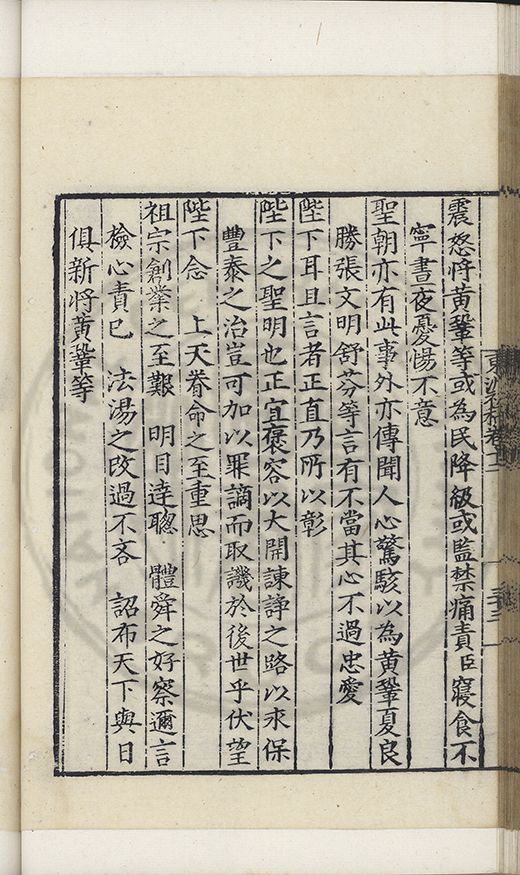 震怒將黃鞏等或為民降級或監禁痛責臣寢食不
寧晝夜憂惕不意
聖朝亦有此事外亦傳聞人心驚駭以為黃鞏夏良
勝張文明舒芬等言有不當其心不過忠愛
陛下耳且言者正直乃所以彰
陛下之聖明也正宜褒容以大開諫諍之路以求保
豐泰之治豈可加以罪謫而取譏於後世乎伏望
陛下念 上天眷命之至重思
祖宗創業之至艱 明目達聰 體舜之好察邇言
檢心責已 法湯之改過不吝 詔布天下與日
俱新將黃鞏等